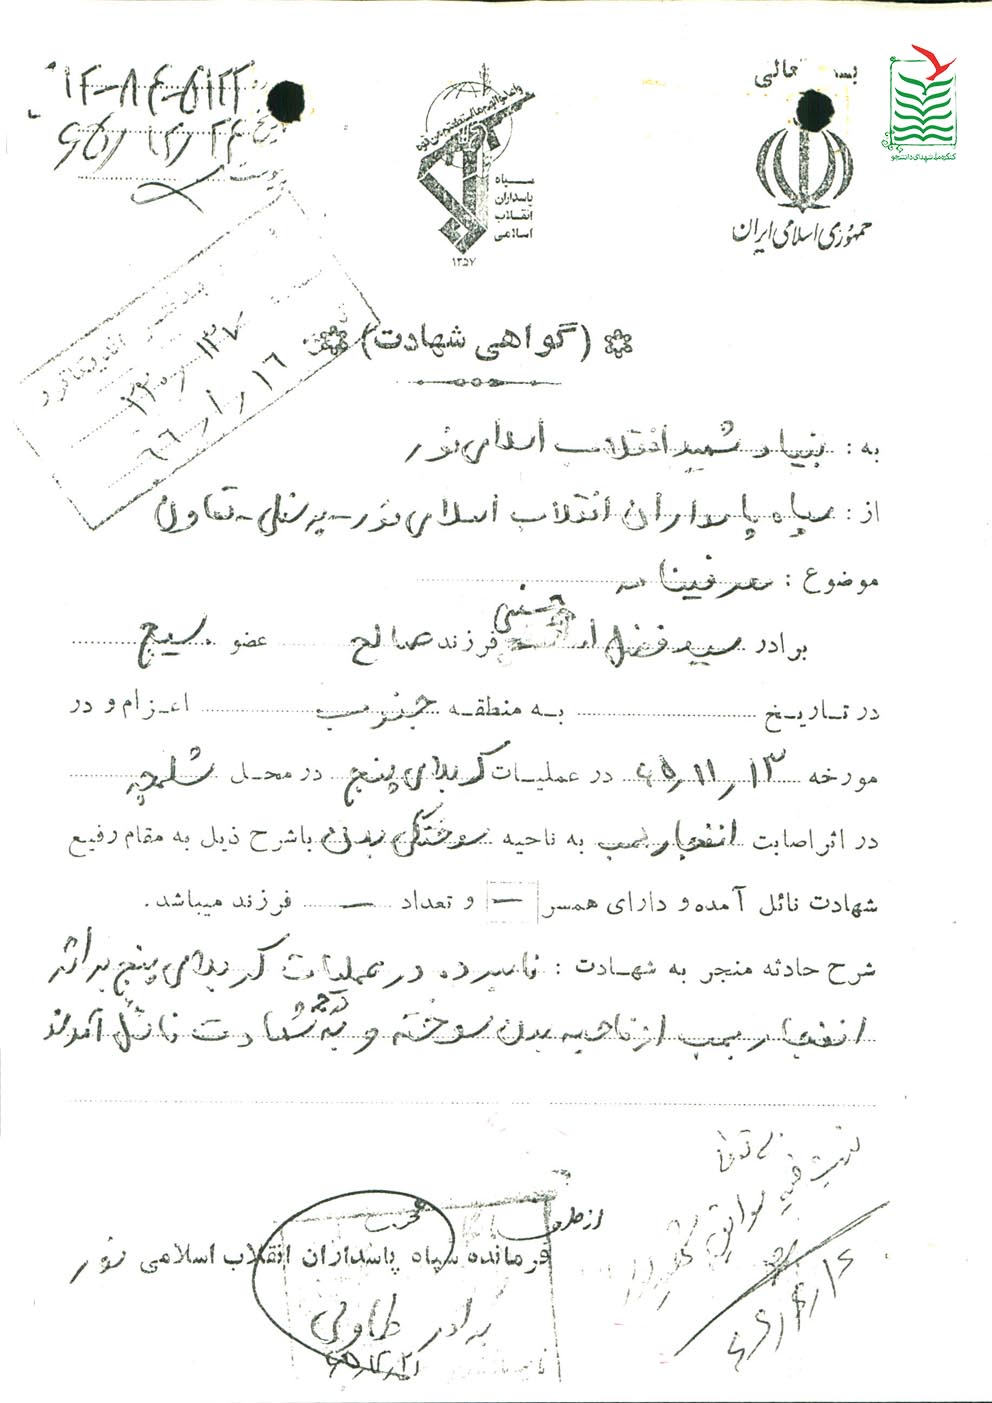 بسمه تعالی
جمهوری اسلامی ایران
سپاه
پاسداران
انقلاب
اسلامی
۱۳۵۷
۱۲-۸۴-۵۱۲۲
۶۵/۱۲/۲۴
کنگره ملی شهدای دانشجو
۱۳۷
۶۶/۱/۱۶
(گواهی شهادت)
به : بنیاد شهید انقلاب اسلامی نور
از : سپاه پاسداران انقلاب اسلامی نور - پرسنلی - تعاون
موضوع : معرفینامه
برادر سید فضل ا... فرزند صالح عضو بسیج
در تاریخ به منطقه جنوب اعزام و در
مورخه ۶۵/۱۱/۱۳ در عملیات کربلای پنج در محل شلمچه
در اثر اصابت انفجار بمب به ناحیه سوختگی بدن باشرح ذیل به مقام رفیع
شهادت نائل آمده و دارای همسر — و تعداد — فرزند میباشد.
شرح حادثه منجر به شهادت : نامبرده در عملیات کربلای پنج بر اثر
انفجار بمب از ناحیه بدن سوخته و به درجه شهادت نائل آمدند
از طرف
فرمانده سپاه پاسداران انقلاب اسلامی نور
برادر طاولی
۶۵/۱۲/۲۱